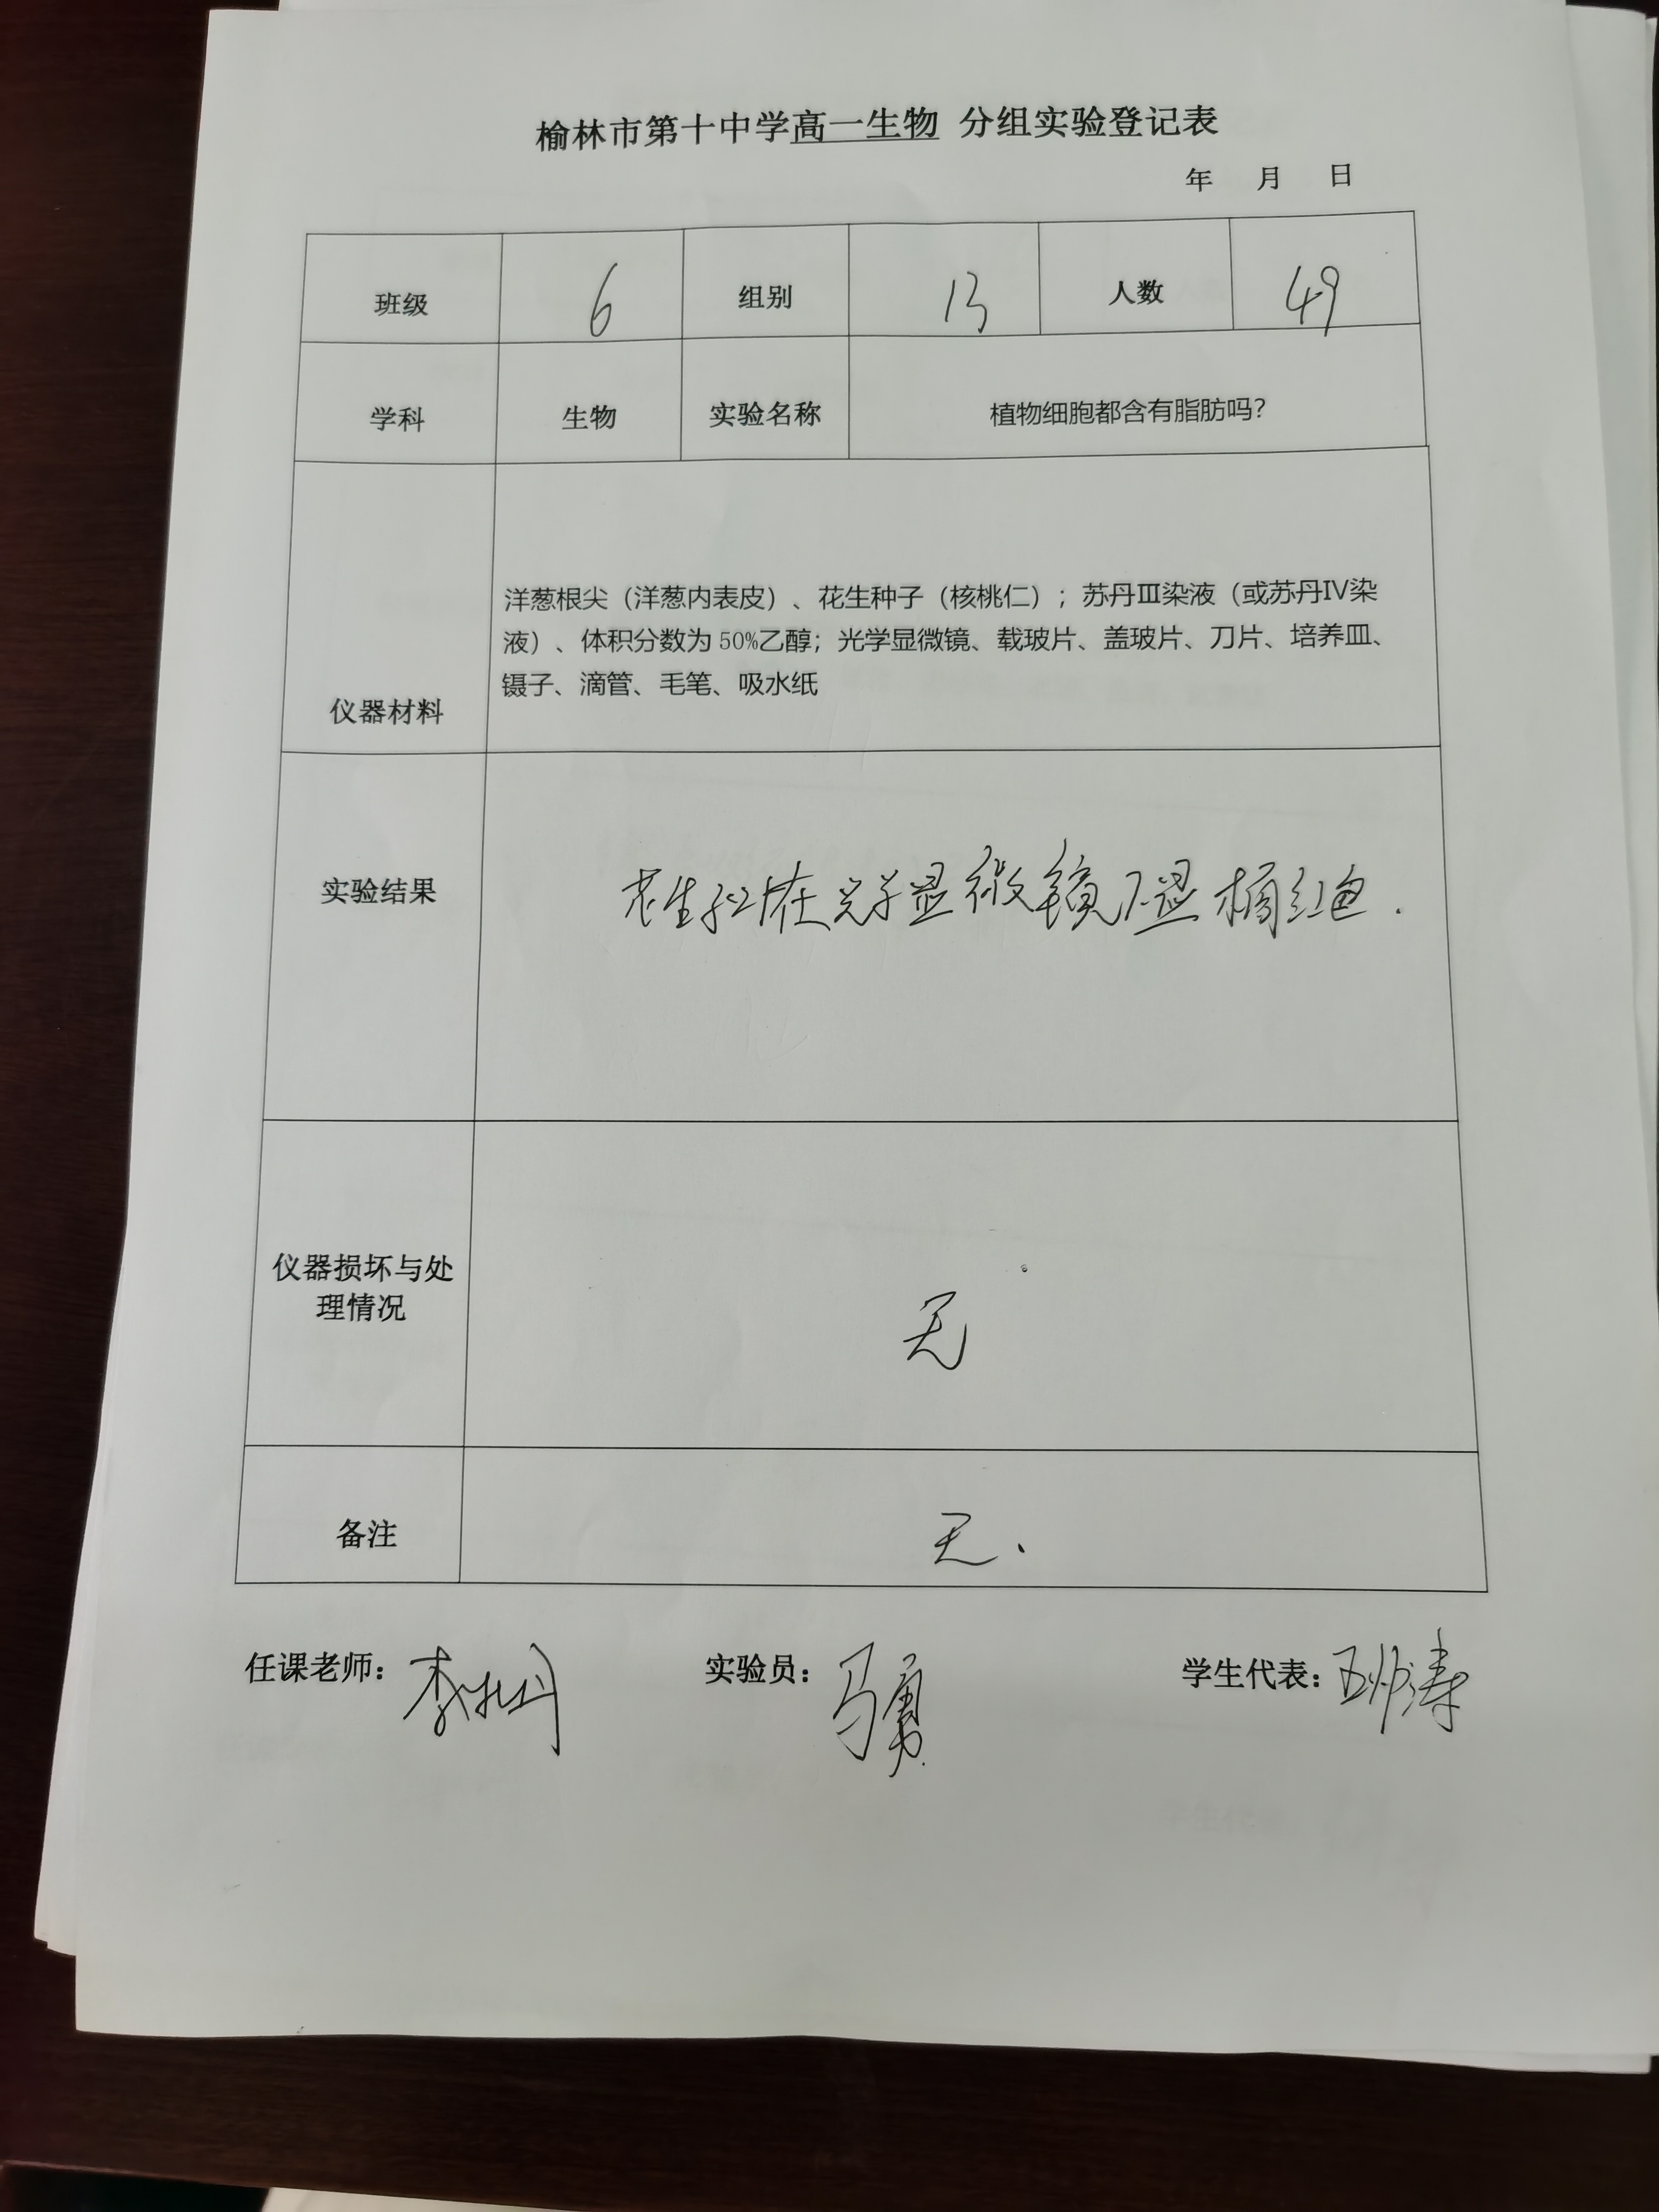 榆林市第十中学高一生物 分组实验登记表
年 月 日
班级 6 组别 13 人数 49
学科 生物 实验名称 植物细胞都含有脂肪吗?
仪器材料
洋葱根尖（洋葱内表皮）、花生种子（核桃仁）；苏丹Ⅲ染液（或苏丹Ⅳ染
液）、体积分数为 50%乙醇；光学显微镜、载玻片、盖玻片、刀片、培养皿、
镊子、滴管、毛笔、吸水纸
实验结果
花生 在光学显微镜下显橘红色.
仪器损坏与处
理情况
无
备注
无.
任课老师： 李 丹 实验员： 马勇 学生代表： 涛